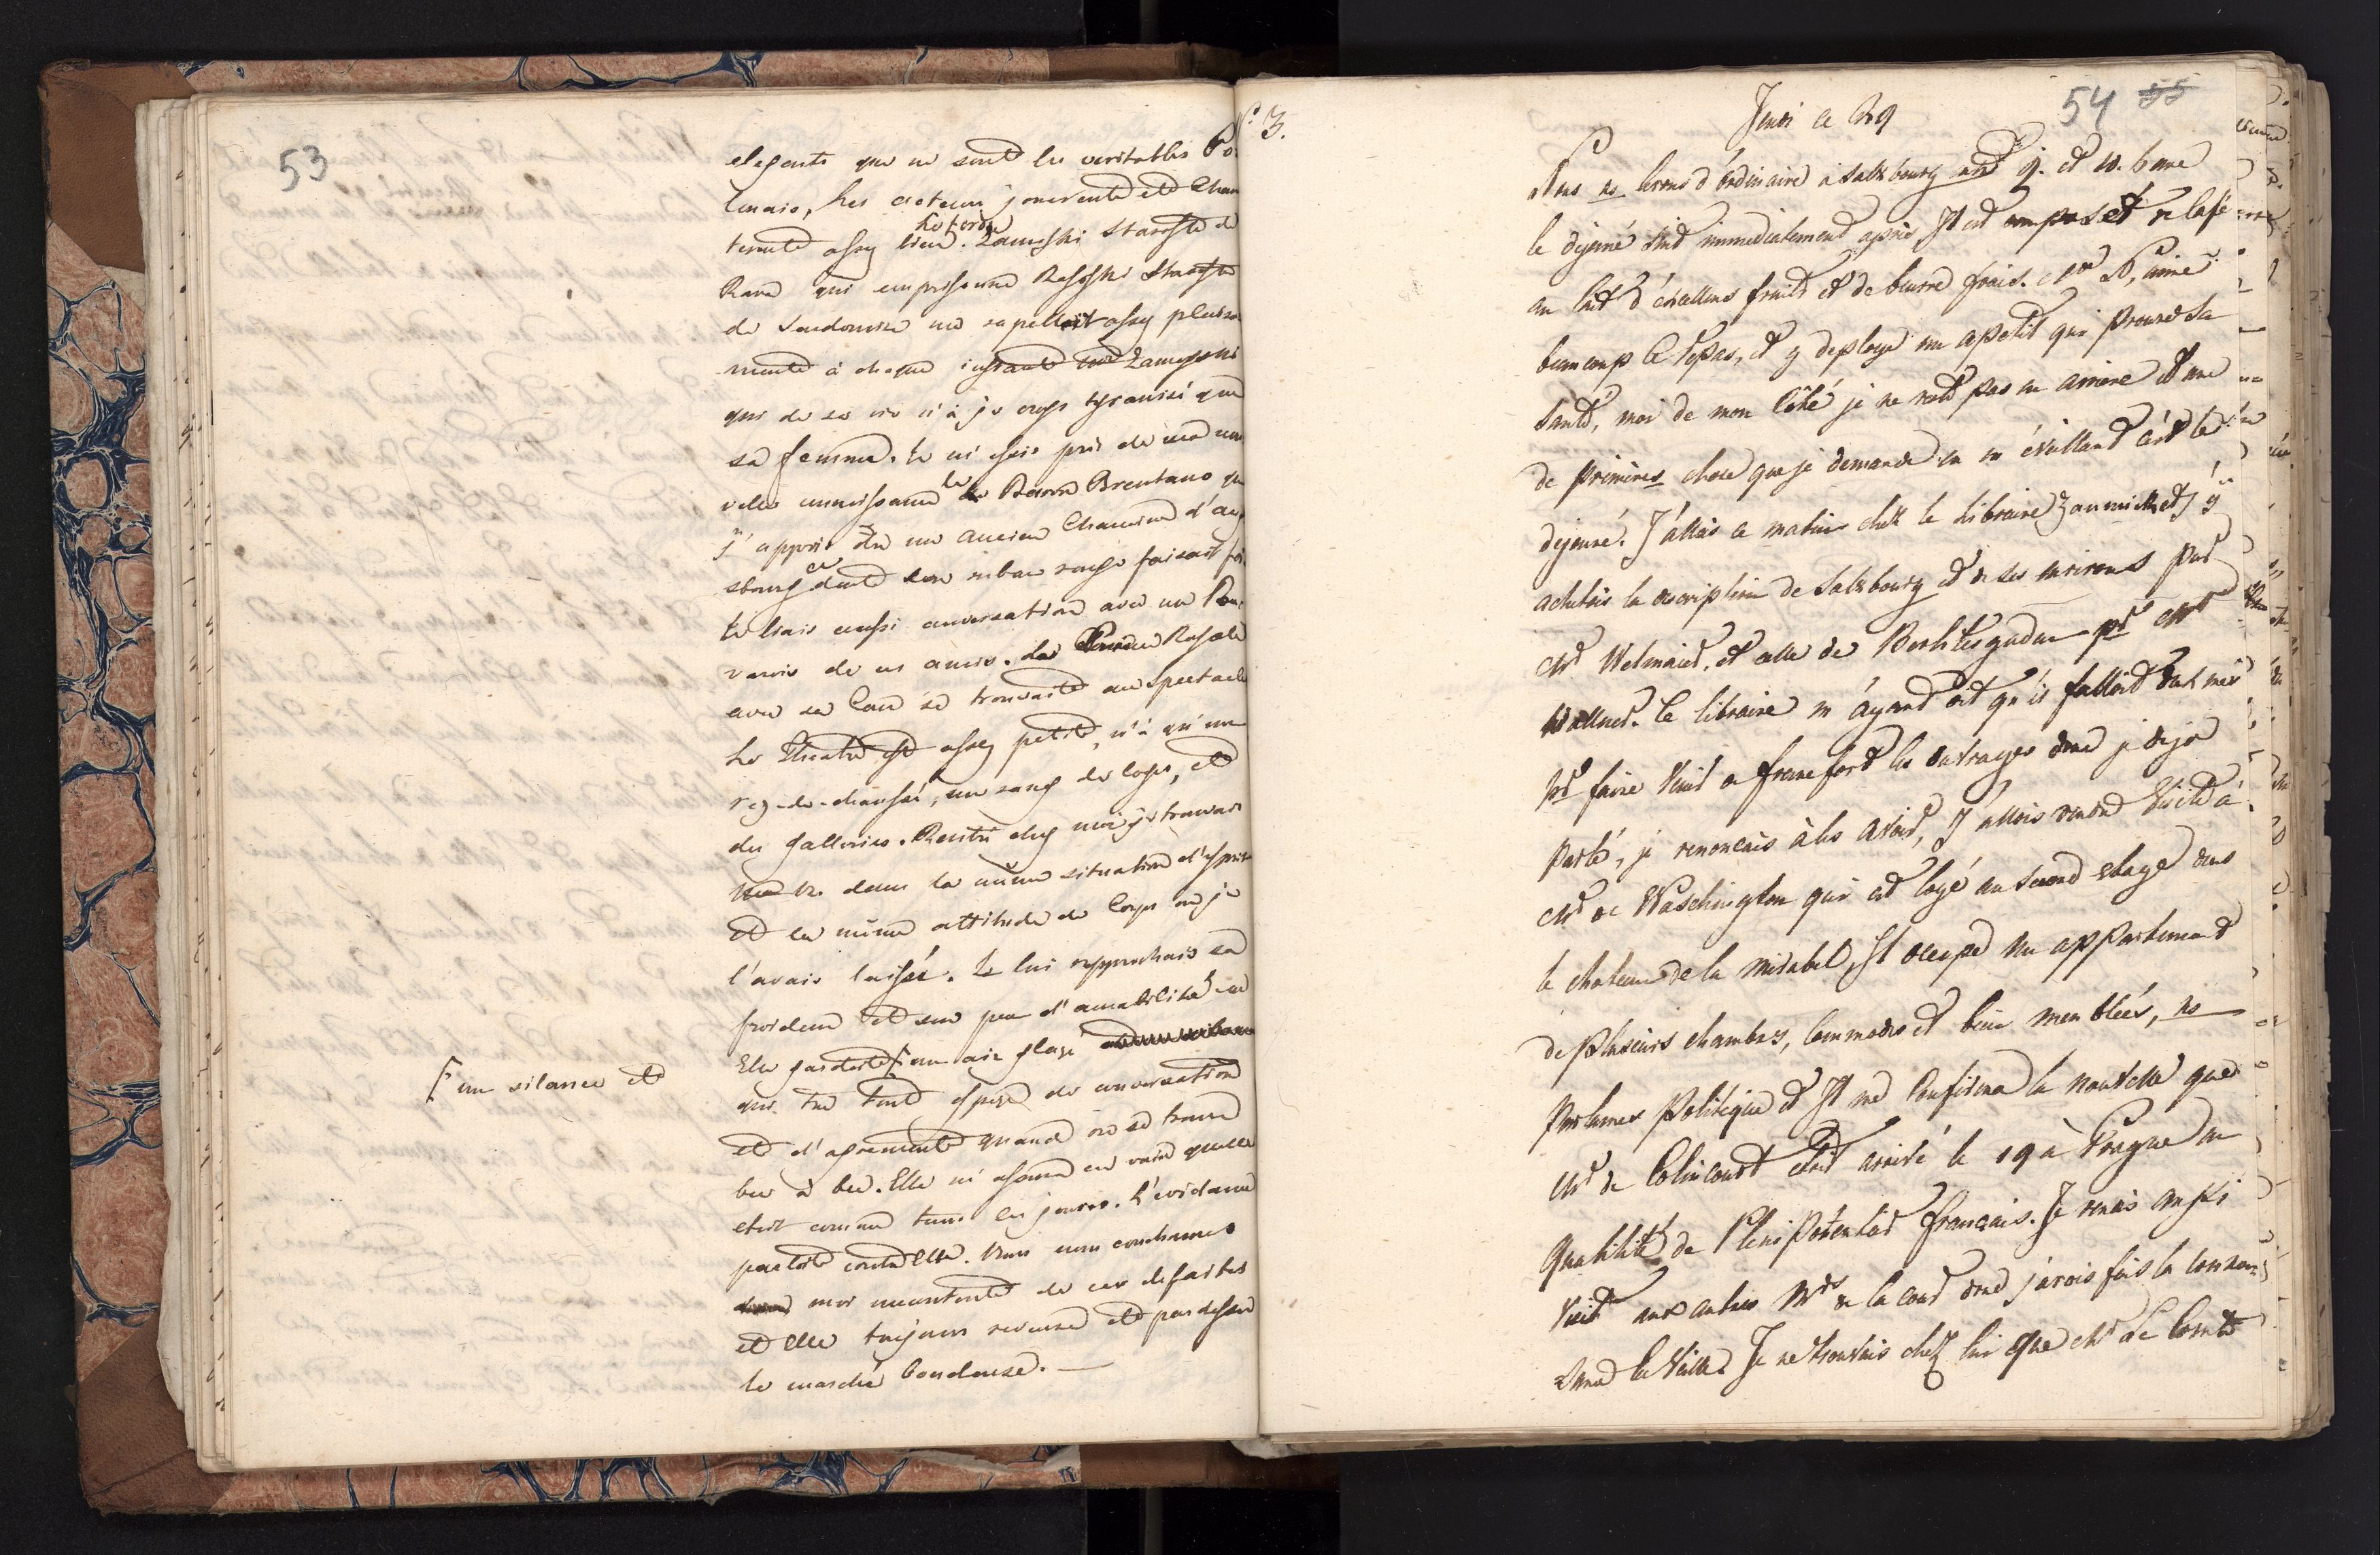 53
elegants que ne sont les veritables Po
lonais, Les acteurs jouerent et chan
terent assez bien. Le tordu Zamoyski Staroste de
Rava qui emprisonne Staroste
de Sendomir me rapelloit assez plaisa
ment à chaque instant Zamoyski
qui de sa vie n'à je crois tyrannisé que
sa femme. Je m'assis près de ma nou
velle connoissance le Baron Brentano que
j'appris être un ancien Chanoine d'aug
sbourg ce dont son ruban rouge faisoit foi.
Je liais aussi conversation avec un Ba
varois de ses amis. La Princesse Royale
avec sa Cour se trouvoit au spectacle
Le Theatre est assez petit, n'à qu'un
rez-de-chaussé, un rang de loges, et
des galleries. Rentré chez moi je trouvai
dans la même situation d'esprit
et la même attitude de Corps ou je
l'avais laissée. Je lui reprochais sa
froideur et son peu d'amabilité
Elle gardoit [ un air glacé
[ un silence et
qui tue toute espece de conversation
et d'agrement quand on se trouve
bec à bec. Elle m'assura en vain qu'elle
etoit comme tous les jours. L'evidence
parloit contre Elle. Nous nous couchames
moi mecontent de ces defaites
et Elle toujours serieuse et par dessus
le marché boudeuse. —
3.
54 55
Jeudi ce 29
Nous ns levons d'ordinaire à Salzbourg entre 9. et 10. heure
le dejeuné suit immediatement après, Il est composé de Cafe
au lait d'excellens fruits et de beurre frais. aime
beaucoup ce repas, et y deploye un apetit qui prouve sa
santé, moi de mon Côté je ne reste pas en arriere et une
de premieres chose que je demande en m'éveillant c'est le
dejeuné. J'allais ce matin chez le Libraire et j'y
achetois la description de Salzbourg et de ses environs par
Mr et celle de Berchtesgaden pr Mr
Le libraire m'ayant dit qu'il falloit
pr faire venir de francfort les ouvrages dont j'ai deja
parlé, je renoncais à les avoir, J'allois rendre visite à
Mr de Waschington qui est logé au second etage dans
le chateau de la Mirabel, Il occupe un appartement
de plusieurs chambres, commodes et bien meublées, ns
parlames Politique et Il me Confirma la nouvelle que
Mr de Colincourt etoit arrivé le 19 à Prague en
Qualité de Plenipotentiar francais. Je rendis aussi
visite aux autres Mrs de la cour dont j'avois fais la connois
sance la veille. Je ne trouvais chez lui que Mr Le Comte